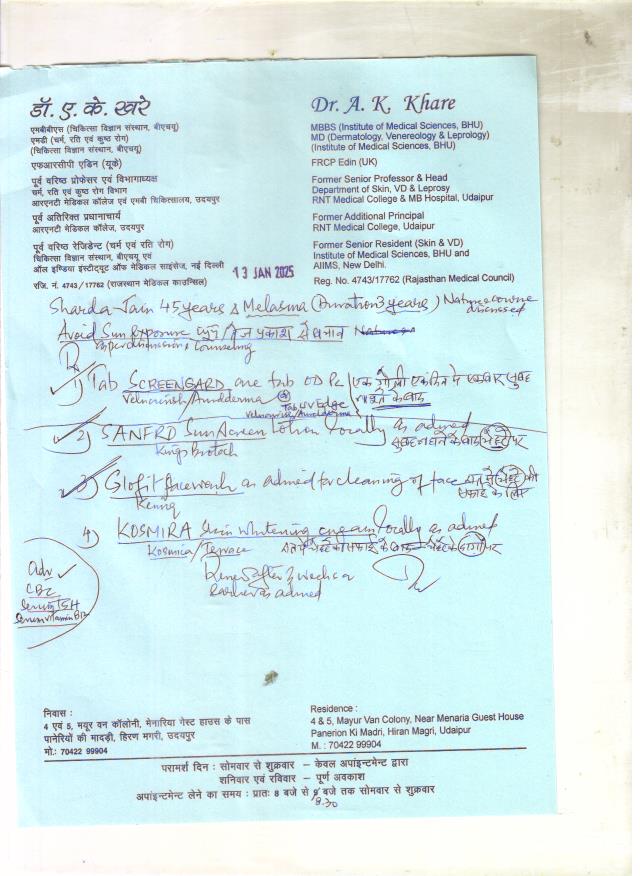 डॉ. ए. के. खरे
एमबीबीएस (चिकित्सा विज्ञान संस्थान, बीएचयू)
एमडी (चर्म, रति एवं कुष्ठ रोग)
(चिकित्सा विज्ञान संस्थान, बीएचयू)
एफआरसीपी एडिन (यूके)
पूर्व वरिष्ठ प्रोफेसर एवं विभागाध्यक्ष
चर्म, रति एवं कुष्ठ रोग विभाग
आरएनटी मेडिकल कॉलेज एवं एमबी चिकित्सालय, उदयपुर
पूर्व अतिरिक्त प्रधानाचार्य
आरएनटी मेडिकल कॉलेज, उदयपुर
पूर्व वरिष्ठ रेजिडेन्ट (चर्म एवं रति रोग)
चिकित्सा विज्ञान संस्थान, बीएचयू एवं
ऑल इण्डिया इंस्टीट्यूट ऑफ मेडिकल साइंसेज, नई दिल्ली
रजि. नं. 4743/17762 (राजस्थान मेडिकल काउन्सिल)
Dr. A. K. Khare
MBBS (Institute of Medical Sciences, BHU)
MD (Dermatology, Venereology & Leprology)
(Institute of Medical Sciences, BHU)
FRCP Edin (UK)
Former Senior Professor & Head
Department of Skin, VD & Leprosy
RNT Medical College & MB Hospital, Udaipur
Former Additional Principal
RNT Medical College, Udaipur
Former Senior Resident (Skin & VD)
Institute of Medical Sciences, BHU and
AIIMS, New Delhi.
Reg. No. 4743/17762 (Rajasthan Medical Council)
13 JAN 2025
Sharda Jain 45 years Melasma (Duration 3 years) Nature course
discussed
Avoid Sun Exposure धूप तेज प्रकाश से बचाव
as per discussion & Counseling
1) Tab SCREENGARD one tab OD एक गोली एक दिन में एक बार सुबह
Tab UV Edge
2) SANFRD Sun Screen lotion locally as advised
Kings Biotech
3) Glofit facewash as advised for cleaning of face
4) KOSMIRA Skin whitening cream locally as advised
Kosmica/
Renew after 3 weeks or
earlier as advised
Adv
CBC
Serum TSH
Serum vitamin B12
निवास :
4 एवं 5, मयूर वन कॉलोनी, मेनारिया गेस्ट हाउस के पास
पानेरियों की मादड़ी, हिरण मगरी, उदयपुर
मो.: 70422 99904
Residence :
4 & 5, Mayur Van Colony, Near Menaria Guest House
Panerion Ki Madri, Hiran Magri, Udaipur
M. : 70422 99904
परामर्श दिन : सोमवार से शुक्रवार – केवल अपांइन्टमेन्ट द्वारा
शनिवार एवं रविवार – पूर्ण अवकाश
अपांइन्टमेन्ट लेने का समय : प्रातः 8 बजे से 9 बजे तक सोमवार से शुक्रवार
8.30